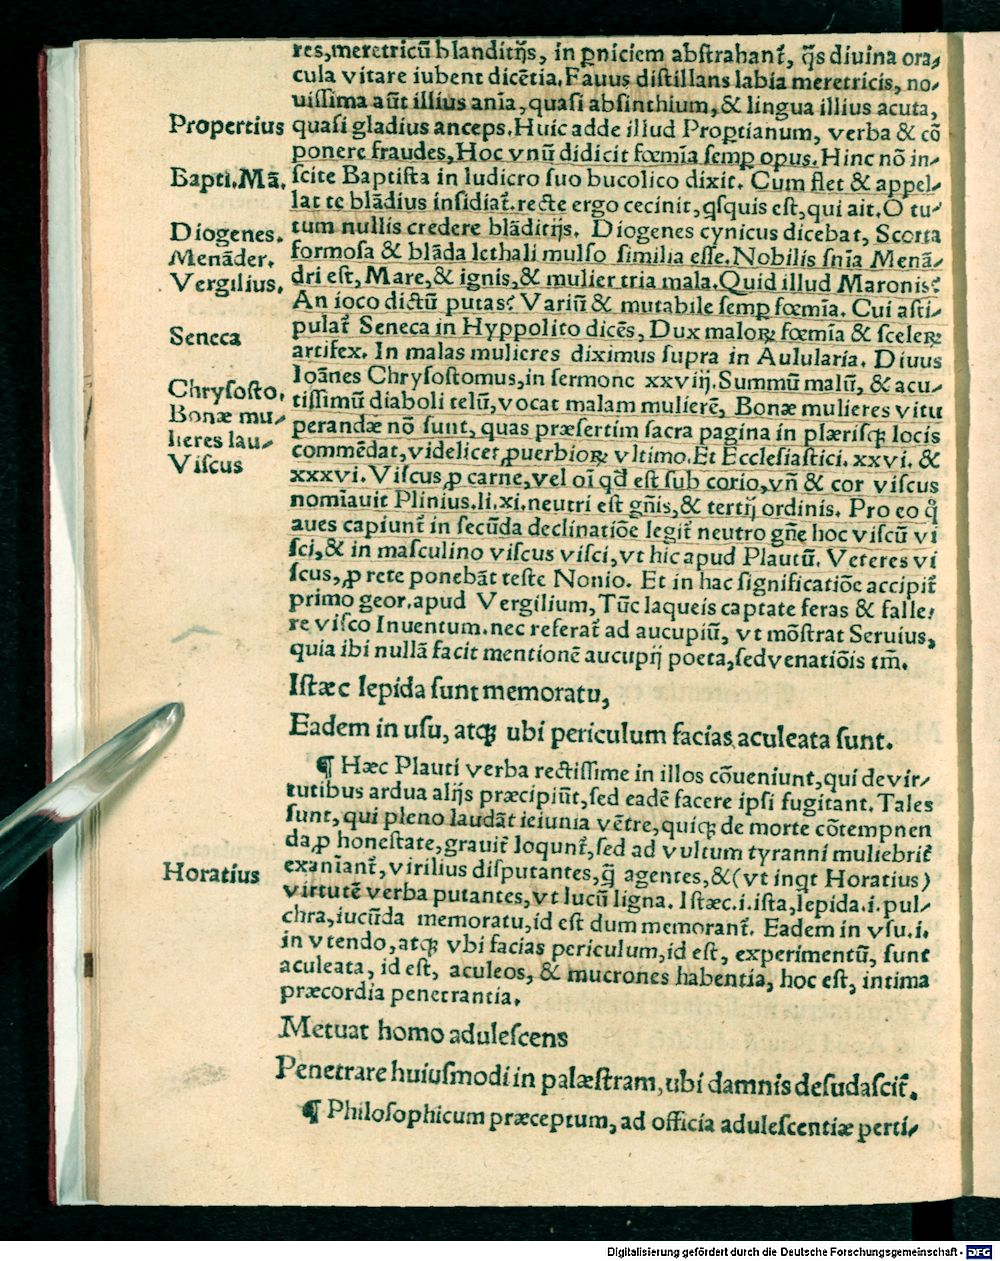 res,meretricū blanditijs, in ꝑniciem abſtrahant᷑, q̄s diuina ora⸗
cula vitare iubent dicētia. Fauus diſtillans labia meretricis, no⸗
uiſſima aūt illius anīa, quaſi abſinthium, & lingua illius acuta,
Propertius quaſi gladius anceps. Huic adde illud Proꝑtianum, verba & cō
ponere fraudes, Hoc vnū didicit fœmīa ſemꝑ opus. Hinc nō in⸗
Bapti. Mā. ſcite Baptiſta in ludicro ſuo bucolico dixit. Cum flet & appel⸗
lat te blādius inſidiat᷑. recte ergo cecinit, qſquis eſt, qui ait. O tu⸗
Diogenes. tum nullis credere blāditijs. Diogenes cynicus dicebat, Scorta
Menāder. formoſa & blāda lethali mulſo ſimilia eſſe. Nobilis ſnīa Menā⸗
Vergilius. dri eſt, Mare, & ignis, & mulier tria mala. Quid illud Maronis?
An ioco dictū putas? Variū & mutabile ſemꝑ fœmīa. Cui aſti⸗
Seneca pulat᷑ Seneca in Hyppolito dicēs, Dux maloꝝ fœmīa & ſceleꝝ
artifex. In malas mulieres diximus ſupra in Aulularia. Diuus
Chryſoſto. Ioānes Chryſoſtomus, in ſermone xxviij. Summū malū, & acu⸗
Bonæ mu⸗ tiſſimū diaboli telū, vocat malam mulierē, Bonæ mulieres vitu
lieres lau⸗ perandæ nō ſunt, quas præſertim ſacra pagina in plæriſqꝫ locis
Viſcus commēdat, videlicet ꝓuerbioꝝ vltimo. Et Eccleſiaſtici. xxvi. &
xxxvi. Viſcus, ꝓ carne, vel oī qd̄ eſt ſub corio, vn̄ & cor viſcus
nomīauit Plinius. li. xi. neutri eſt gn̄is, & tertij ordinis. Pro eo q̊
aues capiunt᷑ in ſecūda declinatiōe legit᷑ neutro gn̄e hoc viſcū vi
ſci, & in maſculino viſcus viſci, vt hic apud Plautū. Veteres vi
ſcus, ꝓ rete ponebāt teſte Nonio. Et in hac ſignificatiōe accipit᷑
primo geor. apud Vergilium, Tūc laqueis captate feras & falle⸗
re viſco Inuentum. nec referat᷑ ad aucupiū, vt mōſtrat Seruius,
quia ibi nullā facit mentionē aucupij poeta, ſed venatiōis tm̄.
Iſtæc lepida ſunt memoratu,
Eadem in uſu, atqꝫ ubi periculum facias aculeata ſunt.
¶ Hæc Plauti verba rectiſſime in illos cōueniunt, qui de vir⸗
tutibus ardua alijs præcipiūt, ſed eadē facere ipſi fugitant. Tales
ſunt, qui pleno laudāt ieiunia vētre, quiqꝫ de morte cōtempnen
da, ꝓ honeſtate, grauit᷑ loqunt᷑, ſed ad vultum tyranni muliebrit᷑
Horatius exanīant᷑, virilius diſputantes, q̄ agentes, & (vt inqt Horatius)
virtutē verba putantes, vt lucū ligna. Iſtæc .i. iſta, lepida .i. pul⸗
chra, iucūda memoratu, id eſt dum memorant᷑. Eadem in vſu .i.
in vtendo, atqꝫ vbi facias periculum, id eſt, experimentū, ſunt
aculeata, id eſt, aculeos, & mucrones habentia, hoc eſt, intima
præcordia penetrantia.
Metuat homo aduleſcens
Penetrare huiuſmodi in palæſtram, ubi damnis deſudaſcit᷑.
¶ Philoſophicum præceptum, ad officia aduleſcentiæ perti⸗
Digitalisierung gefördert durch die Deutsche Forschungsgemeinschaft - DFG